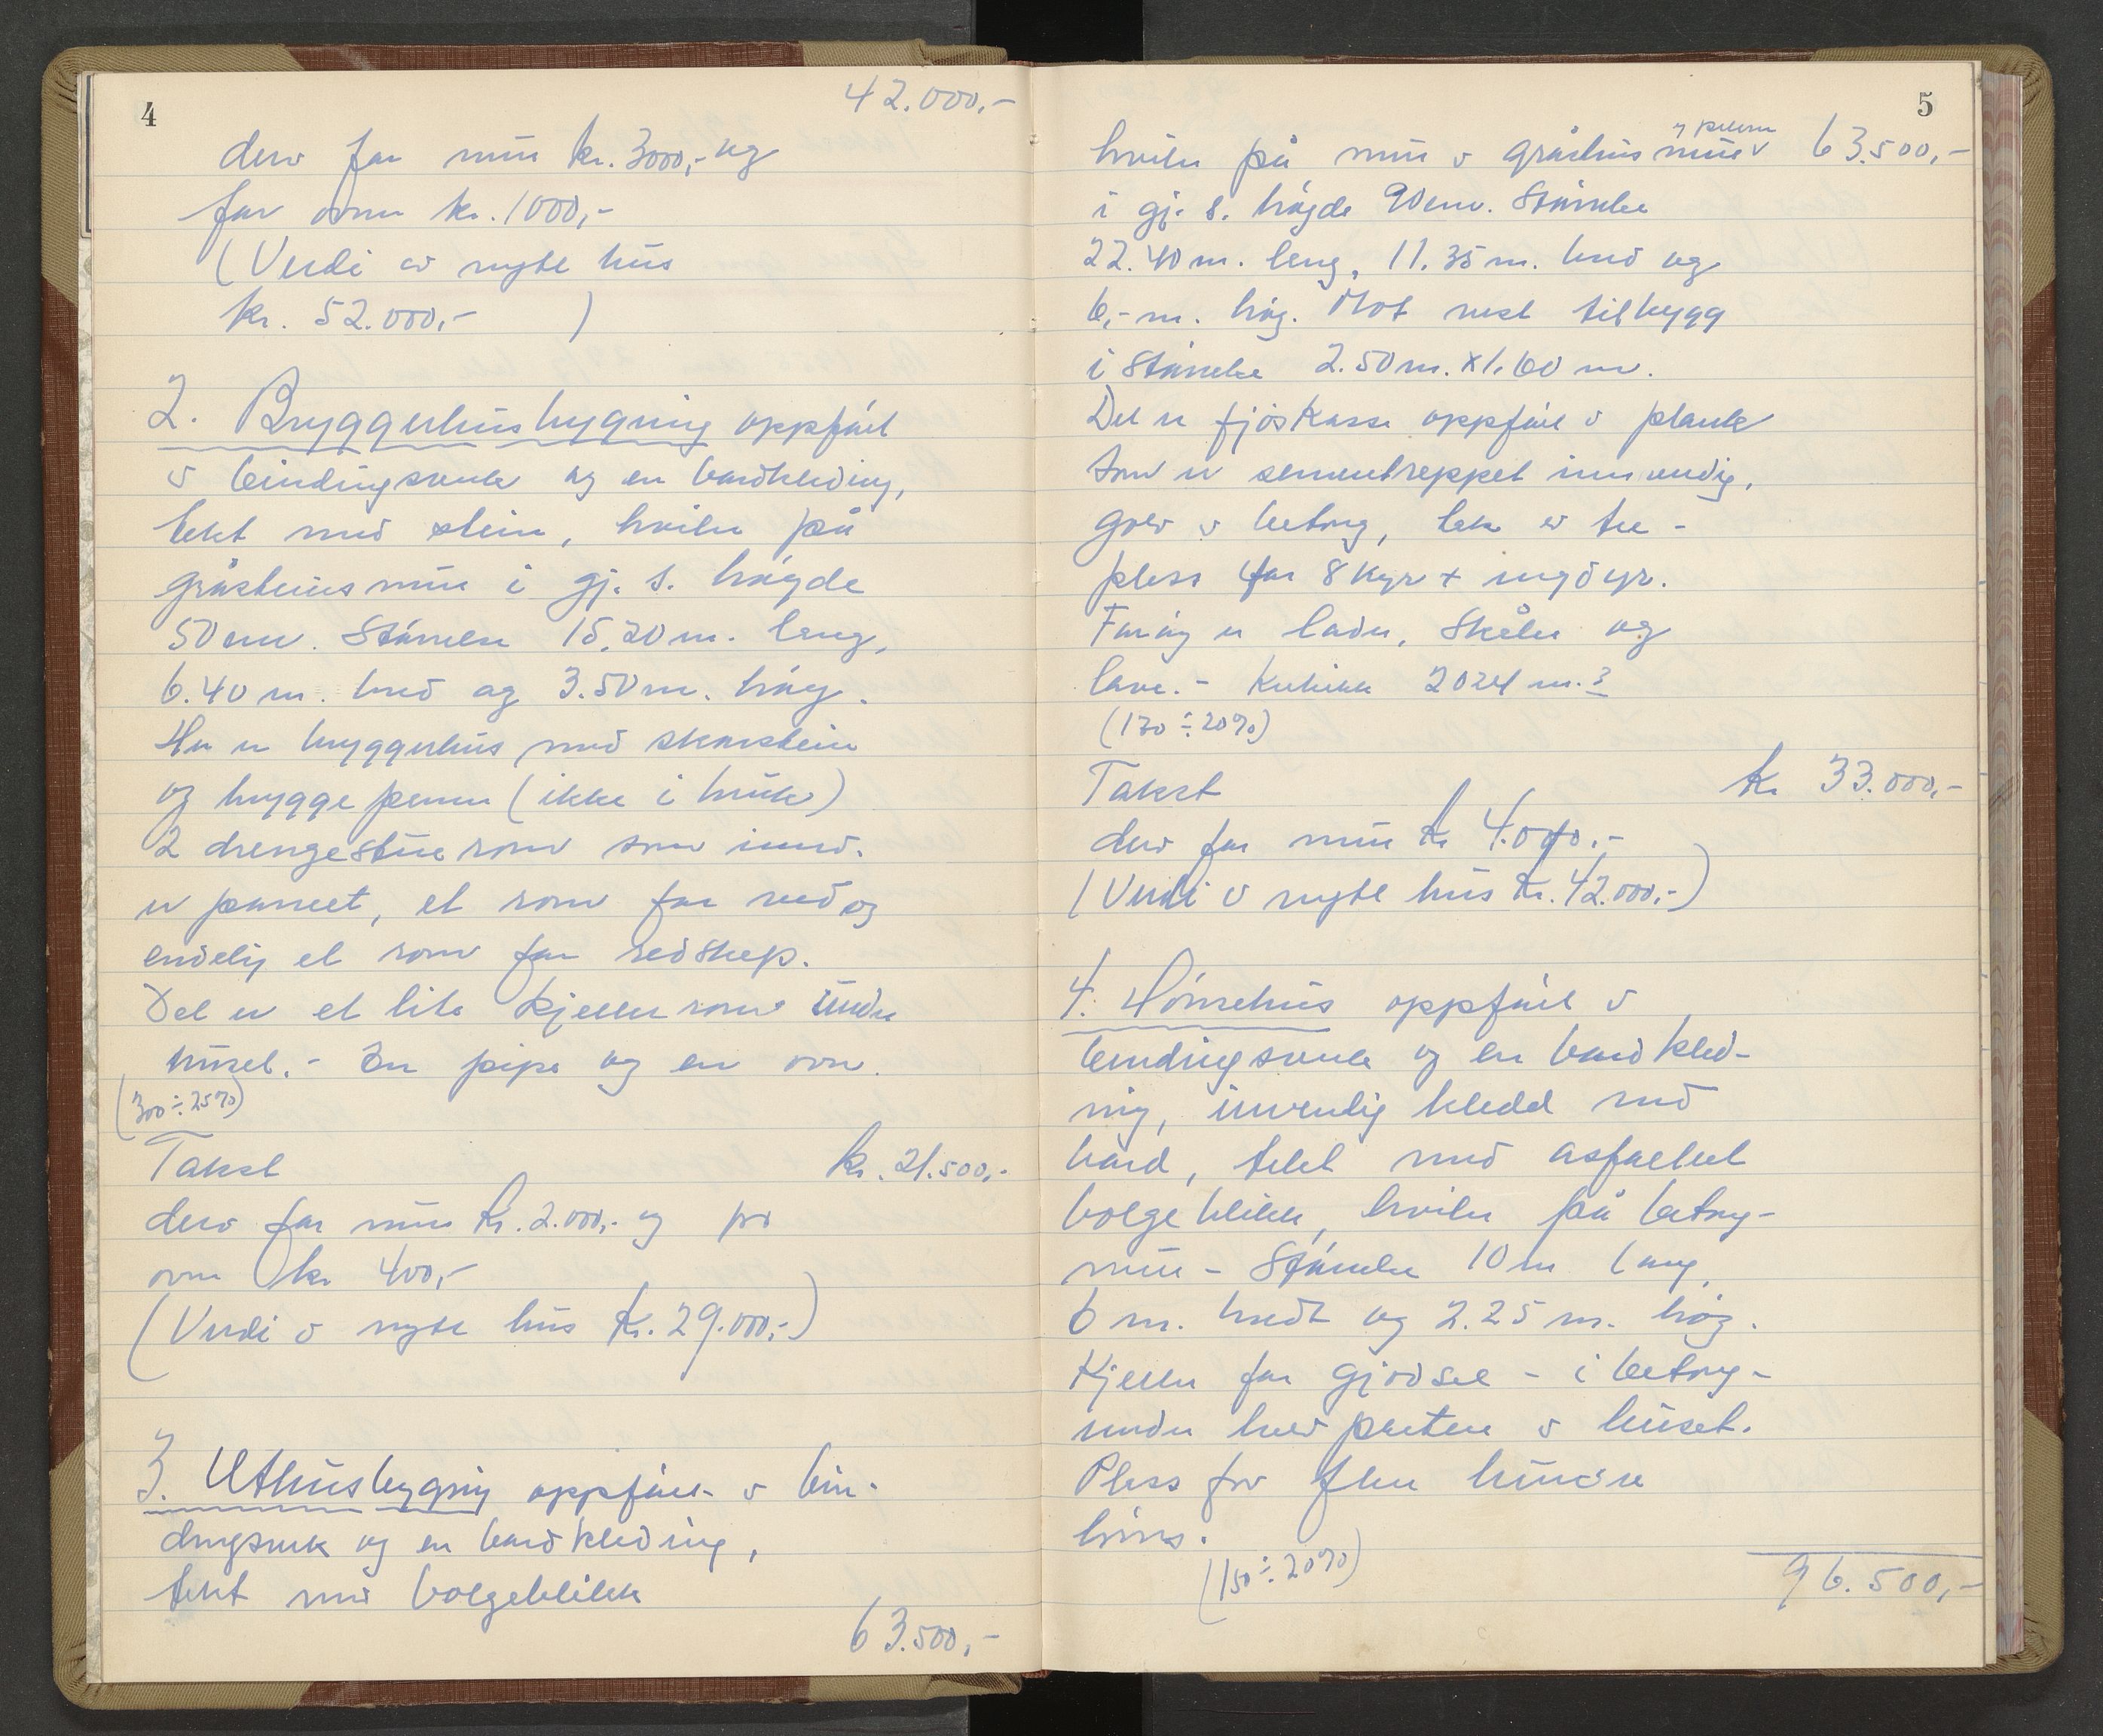 4
42.000,-
derav for mur kr. 3000,- og
for ovner kr. 1000,-
(Verdi av nytt hus
kr. 52.000,- )
2. Bryggerhusbygning oppført
av bindingsverk og en bordkledning,
tekt med stein, hviler på
gråsteinsmur i gj. s. høyde
50 cm. Størrelse 15,20 m. lang,
6.40 m. bred og 3.50 m. høy.
Her er bryggerhus med skorstein
og bryggepanne (ikke i bruk)
2 drengestuerom som innv.
er panelt, et rom for ved og
endelig et rom for redskap.
Det er et lite kjellerrom under
huset. - En pipe og en ovn.
(300 ÷ 25%)
Takst kr. 21.500,-
derav for mur kr. 2.000,- og for
ovn kr 400,-
(Verdi av nytt hus kr. 29.000,-)
3. Uthusbygning oppført av bin-
dingsverk og en bordkledning,
tekt med bølgeblikk
63.500,-
5
hviler på mur av gråsteinsmur og pelarer 63.500,-
i gj. s. høyde 90 cm. Størrelse
22.40 m. lang, 11.35 m. bred og
6,- m. høy. Mot vest tilbygg
i størrelse 2.50 m. x 1.60 m.
Det er fjøskasse oppført av plank
som er sementreppet innvendig,
golv av betong, tak av tre -
plass for 8 kyr + ungdyr.
Forøvrig er lader, skåler og
låve. - Kubikk 2024 m.3
(130 ÷ 20%)
Takst kr 33.000,-
derav for mur kr 4.000.-
(Verdi av nytt hus kr. 42.000,-)
4. Hønsehus oppført av
bindingsverk og en bordkled-
ning, innvendig kledd med
bord, tekt med asfaltert
bølgeblikk, hviler på betong-
mur - Størrelse 10 m lang,
6 m. bredt og 2.25 m. høy.
Kjeller for gjødsel - i betong -
under halvparten av huset.
Plass for flere hundre
høns.
(150 ÷ 20%)
96.500,-